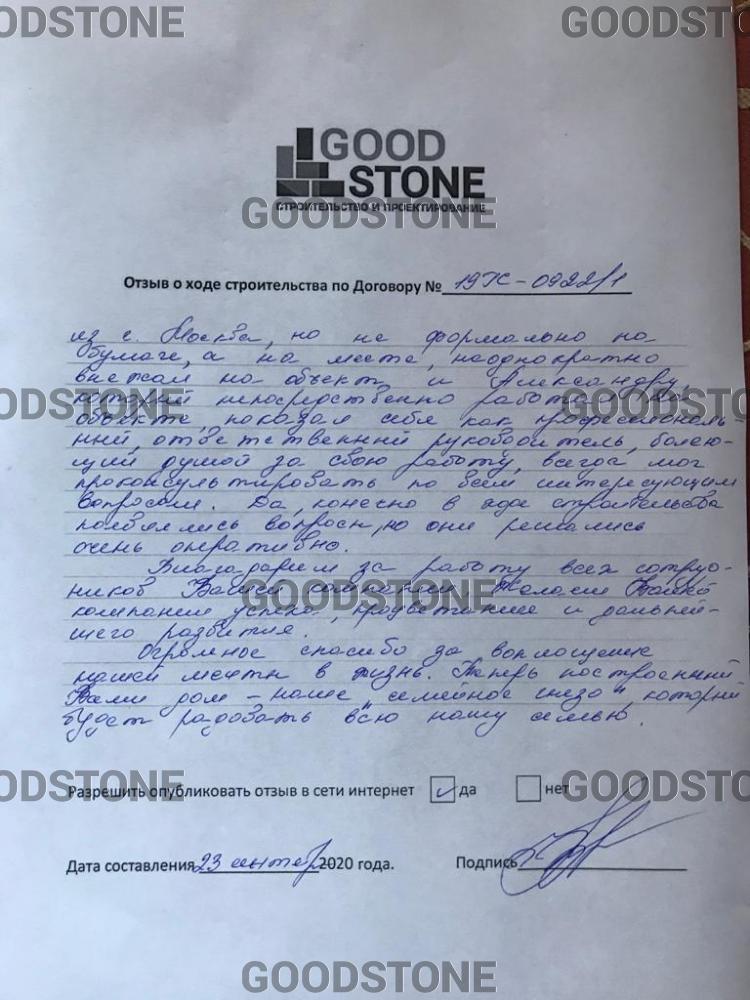 GOODSTONE
GOODSTONE
GOOD
STONE
СТРОИТЕЛЬСТВО И ПРОЕКТИРОВАНИЕ
GOODSTONE
Отзыв о ходе строительства по Договору № 19Ж-0922/1
из г. Москва, но не формально на
бумаге, а на месте, неоднократно
внежал на объект и Александру,
GOODSTONE
GOODSTONE
который непосредственно работал на
объекте, показал себя как профессиональ-
ный, ответственный руководитель, болею-
щий душой за свою работу, всегда мог
проконсультировать по всем интересующим
вопросам. Да, конечно в ходе строительства
появлялись вопросы, но они решались
очень оперативно.
Благодарим за работу всех сотруд-
ников Вашей компании. Желаем Вашей
GOODSTONE
компании успеха, процветания и дальней-
шего развития.
Огромное спасибо за воплощение
нашей мечты в жизнь. Теперь построенный
Вами дом – наше "семейное гнездо", который
будет радовать всю нашу семью.
GOODSTONE
GOODSTONE
Разрешить опубликовать отзыв в сети интернет да нет
Дата составления 23 сентября 2020 года. Подпись
GOODSTONE